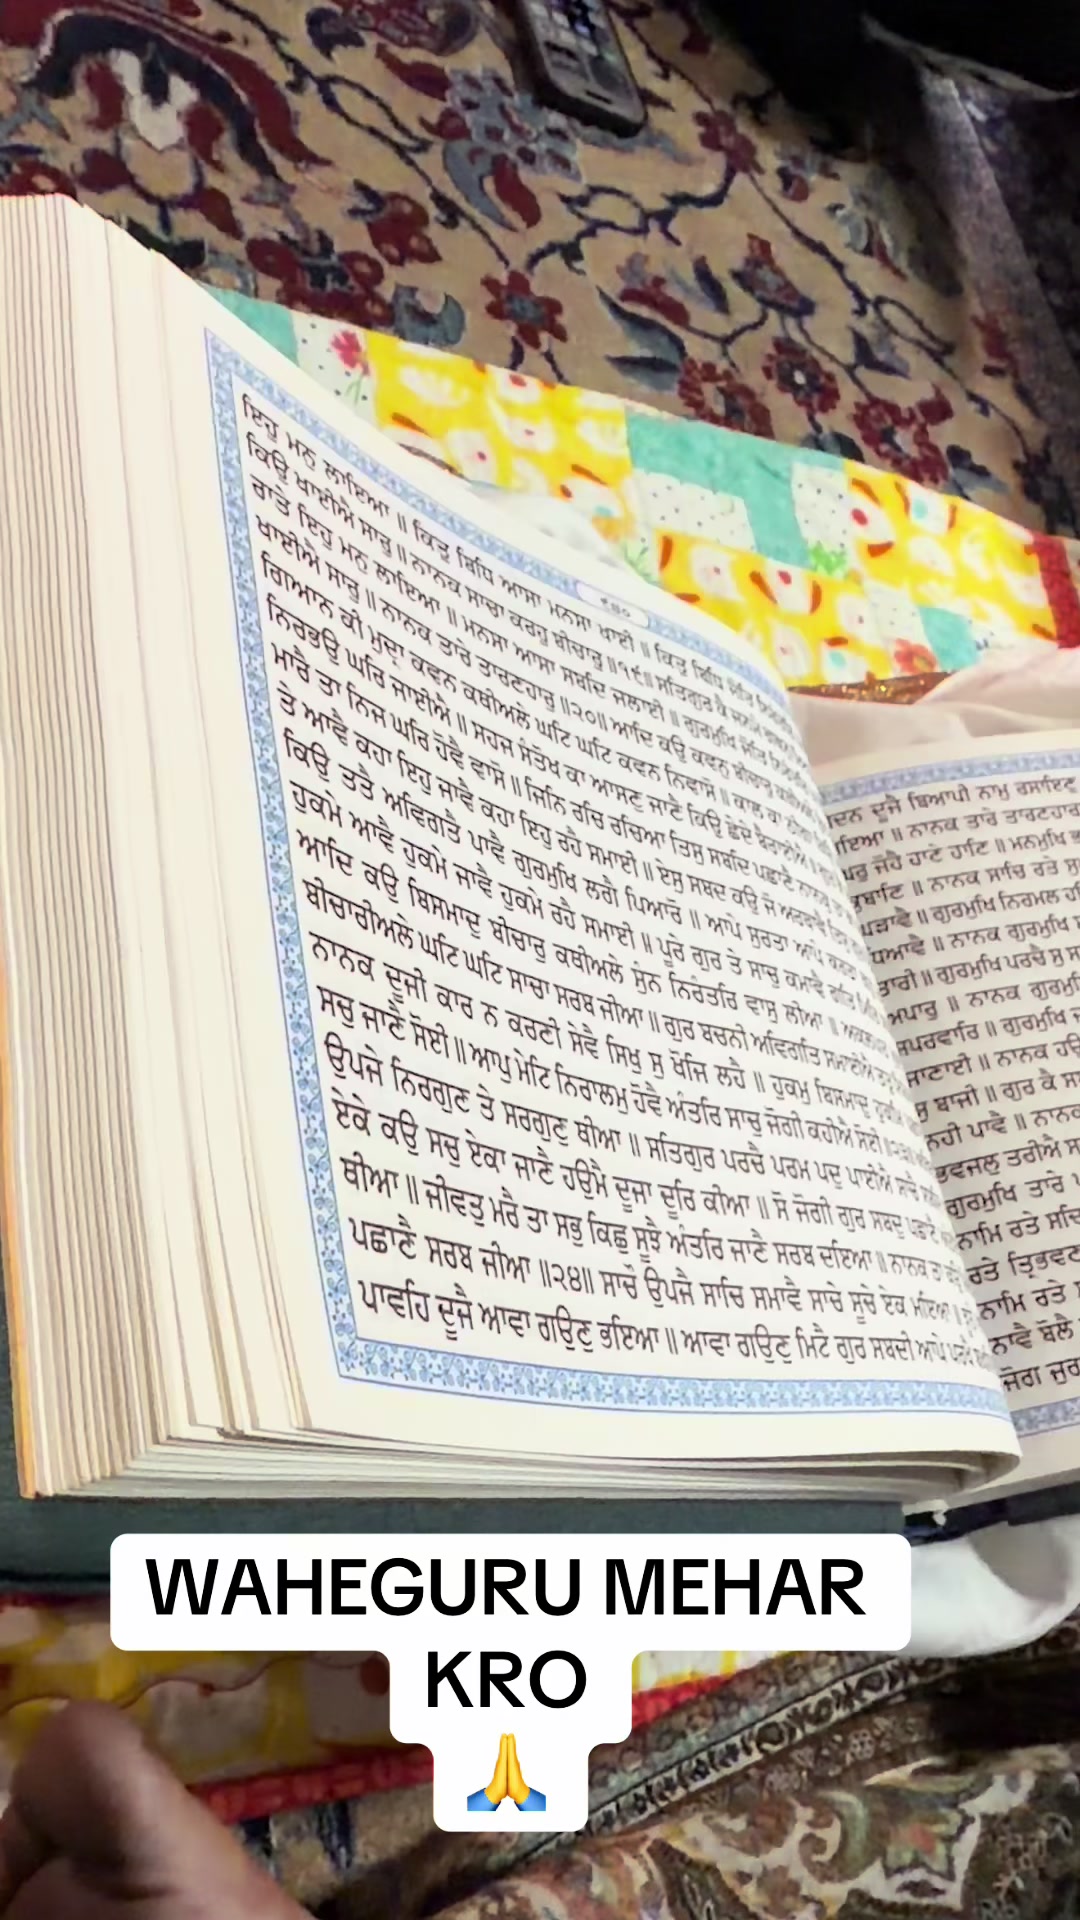 ੯੪੦
ਇਹੁ ਮਨੁ ਲਾਇਆ ॥ ਕਿਤੁ ਬਿਧਿ ਆਸਾ ਮਨਸਾ ਖਾਈ ॥ ਕਿਤੁ ਬਿਧਿ ਜੋਤਿ
ਕਿਉ ਖਾਈਐ ਸਾਰੁ ॥ ਨਾਨਕ ਸਾਚਾ ਕਰਹੁ ਬੀਚਾਰੁ ॥੧੯॥ ਸਤਿਗੁਰ ਕੈ ਜਨਮੇ
ਰਾਤੇ ਇਹੁ ਮਨੁ ਲਾਇਆ ॥ ਮਨਸਾ ਆਸਾ ਸਬਦਿ ਜਲਾਈ ॥ ਗੁਰਮੁਖਿ ਜੋਤਿ
ਖਾਈਐ ਸਾਰੁ ॥ ਨਾਨਕ ਤਾਰੇ ਤਾਰਣਹਾਰੁ ॥੨੦॥ ਆਦਿ ਕਉ ਕਵਨੁ ਬੀਚਾਰੁ
ਗਿਆਨ ਕੀ ਮੁਦ੍ਰਾ ਕਵਨ ਕਥੀਅਲੇ ਘਟਿ ਘਟਿ ਕਵਨ ਨਿਵਾਸੋ ॥ ਕਾਲ ਕਾ
ਨਿਰਭਉ ਘਰਿ ਜਾਈਐ ॥ ਸਹਜ ਸੰਤੋਖ ਕਾ ਆਸਣੁ ਜਾਣੈ ਕਿਉ ਛੇਦੇ ਬੈਰਾਈਐ ॥
ਮਾਰੈ ਤਾ ਨਿਜ ਘਰਿ ਹੋਵੈ ਵਾਸੋ ॥ ਜਿਨਿ ਰਚਿ ਰਚਿਆ ਤਿਸੁ ਸਬਦਿ ਪਛਾਣੈ ਨਾਨਕੁ
ਤੇ ਆਵੈ ਕਹਾ ਇਹੁ ਜਾਵੈ ਕਹਾ ਇਹੁ ਰਹੈ ਸਮਾਈ ॥ ਏਸੁ ਸਬਦ ਕਉ ਜੋ ਅਰਥਾਵੈ
ਕਿਉ ਤਤੈ ਅਵਿਗਤੈ ਪਾਵੈ ਗੁਰਮੁਖਿ ਲਗੈ ਪਿਆਰੋ ॥ ਆਪੇ ਸੁਰਤਾ ਆਪੇ ਕਰਤਾ
ਹੁਕਮੇ ਆਵੈ ਹੁਕਮੇ ਜਾਵੈ ਹੁਕਮੇ ਰਹੈ ਸਮਾਈ ॥ ਪੂਰੇ ਗੁਰ ਤੇ ਸਾਚੁ ਕਮਾਵੈ ਗਤਿ
ਆਦਿ ਕਉ ਬਿਸਮਾਦੁ ਬੀਚਾਰੁ ਕਥੀਅਲੇ ਸੁੰਨ ਨਿਰੰਤਰਿ ਵਾਸੁ ਲੀਆ ॥
ਬੀਚਾਰੀਅਲੇ ਘਟਿ ਘਟਿ ਸਾਚਾ ਸਰਬ ਜੀਆ ॥ ਗੁਰ ਬਚਨੀ ਅਵਿਗਤਿ ਸਮਾਈਐ
ਨਾਨਕ ਦੂਜੀ ਕਾਰ ਨ ਕਰਣੀ ਸੇਵੈ ਸਿਖੁ ਸੁ ਖੋਜਿ ਲਹੈ ॥ ਹੁਕਮੁ ਬਿਸਮਾਦੁ
ਸਚੁ ਜਾਣੈ ਸੋਈ ॥ ਆਪੁ ਮੇਟਿ ਨਿਰਾਲਮੁ ਹੋਵੈ ਅੰਤਰਿ ਸਾਚੁ ਜੋਗੀ ਕਹੀਐ ਸੋਈ ॥੨੩॥
ਉਪਜੇ ਨਿਰਗੁਣ ਤੇ ਸਰਗੁਣੁ ਥੀਆ ॥ ਸਤਿਗੁਰ ਪਰਚੈ ਪਰਮ ਪਦੁ ਪਾਈਐ ਸਾਚੈ
ਏਕੇ ਕਉ ਸਚੁ ਏਕਾ ਜਾਣੈ ਹਉਮੈ ਦੂਜਾ ਦੂਰਿ ਕੀਆ ॥ ਸੋ ਜੋਗੀ ਗੁਰ ਸਬਦੁ ਪਛਾਣੈ
ਥੀਆ ॥ ਜੀਵਤੁ ਮਰੈ ਤਾ ਸਭੁ ਕਿਛੁ ਸੂਝੈ ਅੰਤਰਿ ਜਾਣੈ ਸਰਬ ਦਇਆ ॥ ਨਾਨਕ ਤਾ ਕਉ
ਪਛਾਣੈ ਸਰਬ ਜੀਆ ॥੨੪॥ ਸਾਚੌ ਉਪਜੈ ਸਾਚਿ ਸਮਾਵੈ ਸਾਚੇ ਸੂਚੇ ਏਕ ਮਇਆ ॥
ਪਾਵਹਿ ਦੂਜੈ ਆਵਾ ਗਉਣੁ ਭਇਆ ॥ ਆਵਾ ਗਉਣੁ ਮਿਟੈ ਗੁਰ ਸਬਦੀ ਆਪੇ ਪਰਖੈ
ਦੂਜੈ ਬਿਆਪੀ ਨਾਮੁ ਰਸਾਇਣੁ
॥ ਨਾਨਕ ਤਾਰੇ ਤਾਰਣਹਾਰ
ਜੋਹੈ ਹਾਣੇ ਹਾਣਿ ॥ ਮਨਮੁਖਿ
॥ ਨਾਨਕ ਸਾਚਿ ਰਤੇ
॥ ਗੁਰਮੁਖਿ ਨਿਰਮਲ
॥ ਨਾਨਕ ਗੁਰਮੁਖਿ
॥ ਗੁਰਮੁਖਿ ਪਰਚੈ ਸੁ
॥ ਨਾਨਕ ਗੁਰਮੁਖਿ
ਸਪਰਵਾਰਿ ॥ ਗੁਰਮੁਖਿ
॥ ਨਾਨਕ
ਸੁ ਬਾਜੀ ॥ ਗੁਰ ਕੈ
ਨਹੀ ਪਾਵੈ ॥ ਨਾਨਕ
ਭਵਜਲੁ ਤਰੀਐ
ਗੁਰਮੁਖਿ ਤਾਰੇ
ਨਾਮਿ ਰਤੇ ਸਚਿ
ਰਤੇ ਤ੍ਰਿਭਵਣ
ਨਾਮਿ ਰਤੇ
ਨਾਵੈ ਬੋਲੈ
ਜੋਗ ਜੁਗ
WAHEGURU MEHAR
KRO
🙏